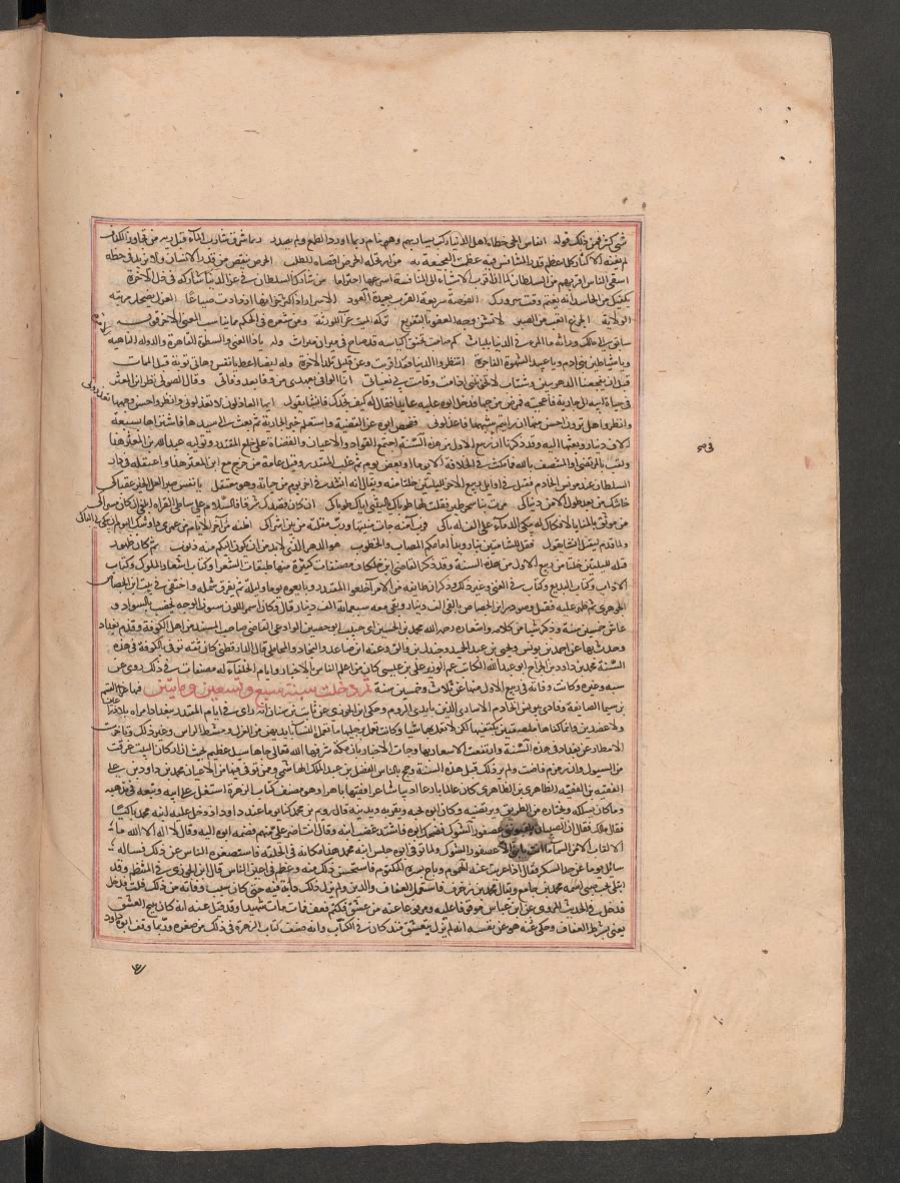 شي كثير فمن ذلك قوله انفاس الحي خطاه اهل الدنيا ركب يساربهم وهم نيام ربما اورد الطمع ولم يصدر ربما شرق شارب الماء قبل ريه من تجاوز الكفاف
لم يغنه الاكثار كلما عظم قدر المنافس فيه عظمت الفجيعة به من ارحله الحرص انضاه الطلب الحرص ينقص من قدر الانسان ولا يزيد في حظه
اشقى الناس اقربهم من السلطان كما ان اقرب الاشياء الى النار اسرعها احتراقا من شارك السلطان في عز الدنيا شاركه في ذل الاخرة
يكفيك من الحاسد انه يغتم وقت سرورك الفرصة سريعة الفوت بعيدة العود الاسرار اذا كثر خزانها ازدادت ضياعا العزل يضحك من تيه
الولاية الجزع اتعب من الصبر لا تشن وجه العفو بالتقريع تركة الميت عز للورثة ومن شعره في الحكم مما يناسب المعنى الاخر قوله
سابق الى مالك وراثه ما المرء في الدنيا بلباث كم صامت تخنق اكياسه قد صاح في ميزان ميراث وله يا ذا الغنى والسطوة القاهرة والدولة الناهية
ويا شياطين بني ادم ويا عبيد الشهوة الفاجرة انتظروا الدنيا فقد اقربت وعن قليل تلد الاخرة وله ايضا يا نفس وهاتي توبة قبل الممات
قبل ان يفجعنا الدهر ببين وشتات
في حياة ابيه الى جارية فاعجبته فمرض من حبها فدخل ابوه عليه عايدا فقال له كيف تجدك فانشا يقول ايها العاذلون لا تعذلوني وانظروا حسن وجهها تعذروني
وانظروا هل ترون احسن منها ان رايتم شبيهها فاعذلوني ففحص ابوه عن القضية واستعلم خبر الجارية ثم بعث الى سيدها فاشتراها بسبعة
الاف دينار وبعثها اليه وقد ذكرنا ان في ربيع الاول من هذه السنة اجتمع القواد والاعيان والقضاة على خلع المقتدر وتولية عبد الله بن المعتز هذا
ولقب بالمرتضي او المنتصف بالله فما مكث في الخلافة الا يوما او بعض يوم ثم غلب المقتدر وقتل عامة من خرج مع ابن المعتز هذا واعتقله في دار
السلطان عند مونس الخادم فقتل في اوايل ربيع الاخر لليلتين خلتا منه ويقال انه انشد في اخر يوم من حياته وهو معتقل يا نفس صبرا لعل الخير عقباك
خانتك من بعد طول الامن دنياك مرت بنا سحرا طير فقلت لها طوباك يا ليتني اياك طوباك ان كان قصدك شرقا فالسلام على شاطي الصراة ابلغي ان كان مسراك
من موثق بالمنايا لا فكاك له يبكي الدماء على الف له باكي فرب امنة حانت منيتها ورب مفلتة من بين اشراك اظنه اخر الايام من عمري واوشك اليوم ان يبكي لي الباكي
ولما قدم ليقتل انشا يقول فقل للشامتين بنا رويدا امامكم المصايب والخطوب هو الدهر الذي لا بد من ان تكون اليكم منه ذنوب ثم كان ظهور
قتله لليلتين خلتا من ربيع الاول من هذه السنة وقد ذكر القاضي ابن خلكان مصنفات كثيرة منها طبقات الشعراء وكتاب اشعار الملوك وكتاب
الاداب وكتاب البديع وكتاب في الغني وغير ذلك وذكر ان طايفة من الامراء خلعوا المقتدر وبايعوه يوما وليلة ثم تفرق شمله واختفى في بيت ابن الجصاص
الجوهري ثم ظهر عليه فقتل وصودر ابن الجصاص بالفي الف دينار وبقي معه ستمائة الف دينار قال وكان اسمر اللون مسنون الوجه يخضب بالسواد و
عاش خمسين سنة وذكر شيا من كلامه واشعاره رحمه الله محمد بن الحسين بن حبيب ابو حصين الوادعي القاضي صاحب المسند من اهل الكوفة وقدم بغداد
وحدث بها عن احمد بن يونس ويحيى بن عبد الحميد وجندل بن والق وعنه ابن صاعد والنجاد والمحاملي قال الدارقطني كان ثقة توفي بالكوفة في هذه
السنة محمد بن داود بن الجراح ابو عبد الله الكاتب عم الوزير علي بن عيسى كان من اعلم الناس بالاخبار وايام الخلفاء له مصنفات في ذلك روى عن
شبه وغيره وكانت وفاته في ربيع الاول منها عن ثلاث وخمسين سنة ثم دخلت سنة سبع وتسعين ومايتين فيها غزا القاسم
بن سيما الصايفة وفادي مونس الخادم الاسارى الذين بايدي الروم وحكى ابن الجوزي عن ثابت بن سنان انه راى في ايام المقتدر ببغداد امراة بلا ذراعين
ولا عضدين وانما كفاها ملصقتين بكتفيها لكن لا تعمل بهما شيا وكانت تعمل برجليها ما تعمل النساء بايديهن من الغزل ومشط الراس وغير ذلك وتاخرت
الامطار عن بغداد في هذه السنة وارتفعت الاسعار بها وجات الاخبار بان مكة شرفها الله تعالى جاها سيل عظيم بحيث ان اركان البيت غرقت
من السيول وان زمزم فاضت ولم ير ذلك قبل هذه السنة وحج بالناس الفضل بن عبد الملك الهاشمي وممن توفي فيها من الاعيان محمد بن داود بن علي
الفقيه بن الفقيه الظاهري بن الظاهري كان عالما بارعا اديبا شاعرا فقيها ماهرا وهو مصنف كتاب الزهرة اشتغل على ابيه وتبعه في مذهبه
وما كان يسلكه ويختاره من الطريق ويرتضيه وكان ابوه يحبه ويقربه ويدنيه قال رويم بن محمد كنا يوما عند داود اذ دخل عليه ابنه محمد باكيا
فقال مالك فقال ان الصبيان يلقبونني عصفور الشوك فضحك ابوه فاشتد غضب ابنه وقال انت اضر علي منهم فضمه ابوه اليه وقال لا اله الا الله ما
الالقاب الا من السماء ما انت يا بني الا عصفور الشوك ولما توفي ابوه جلس ابنه محمد هذا مكانه في الحلقة فاستصغره الناس عن ذلك فساله
سايل يوما عن حد السكر فقال اذا عزبت عنه الهموم وباح بسره المكتوم فاستحسن ذلك منه وعظم في اعين الناس قال ابن الجوزي في المنتظم وقد
ابتلي بحب صبي اسمه محمد بن جامع ويقال محمد بن زخرف فاستعمل العفاف والدين ولم يزل ذلك دابه فيه حتى كان سبب وفاته من ذلك قلت فدخل
في الحديث المروي عن ابن عباس موقوفا عليه ومرفوعا عنه من عشق فكتم فعف فمات مات شهيدا وقد قيل عنه انه كان يبيح العشق
يعني بشرط العفاف وحكى عنه هو عن نفسه انه لم يزل يتعشق منذ كان في الكتاب وانه صنف كتاب الزهرة في ذلك من صغره وربما وقف ابوه داود